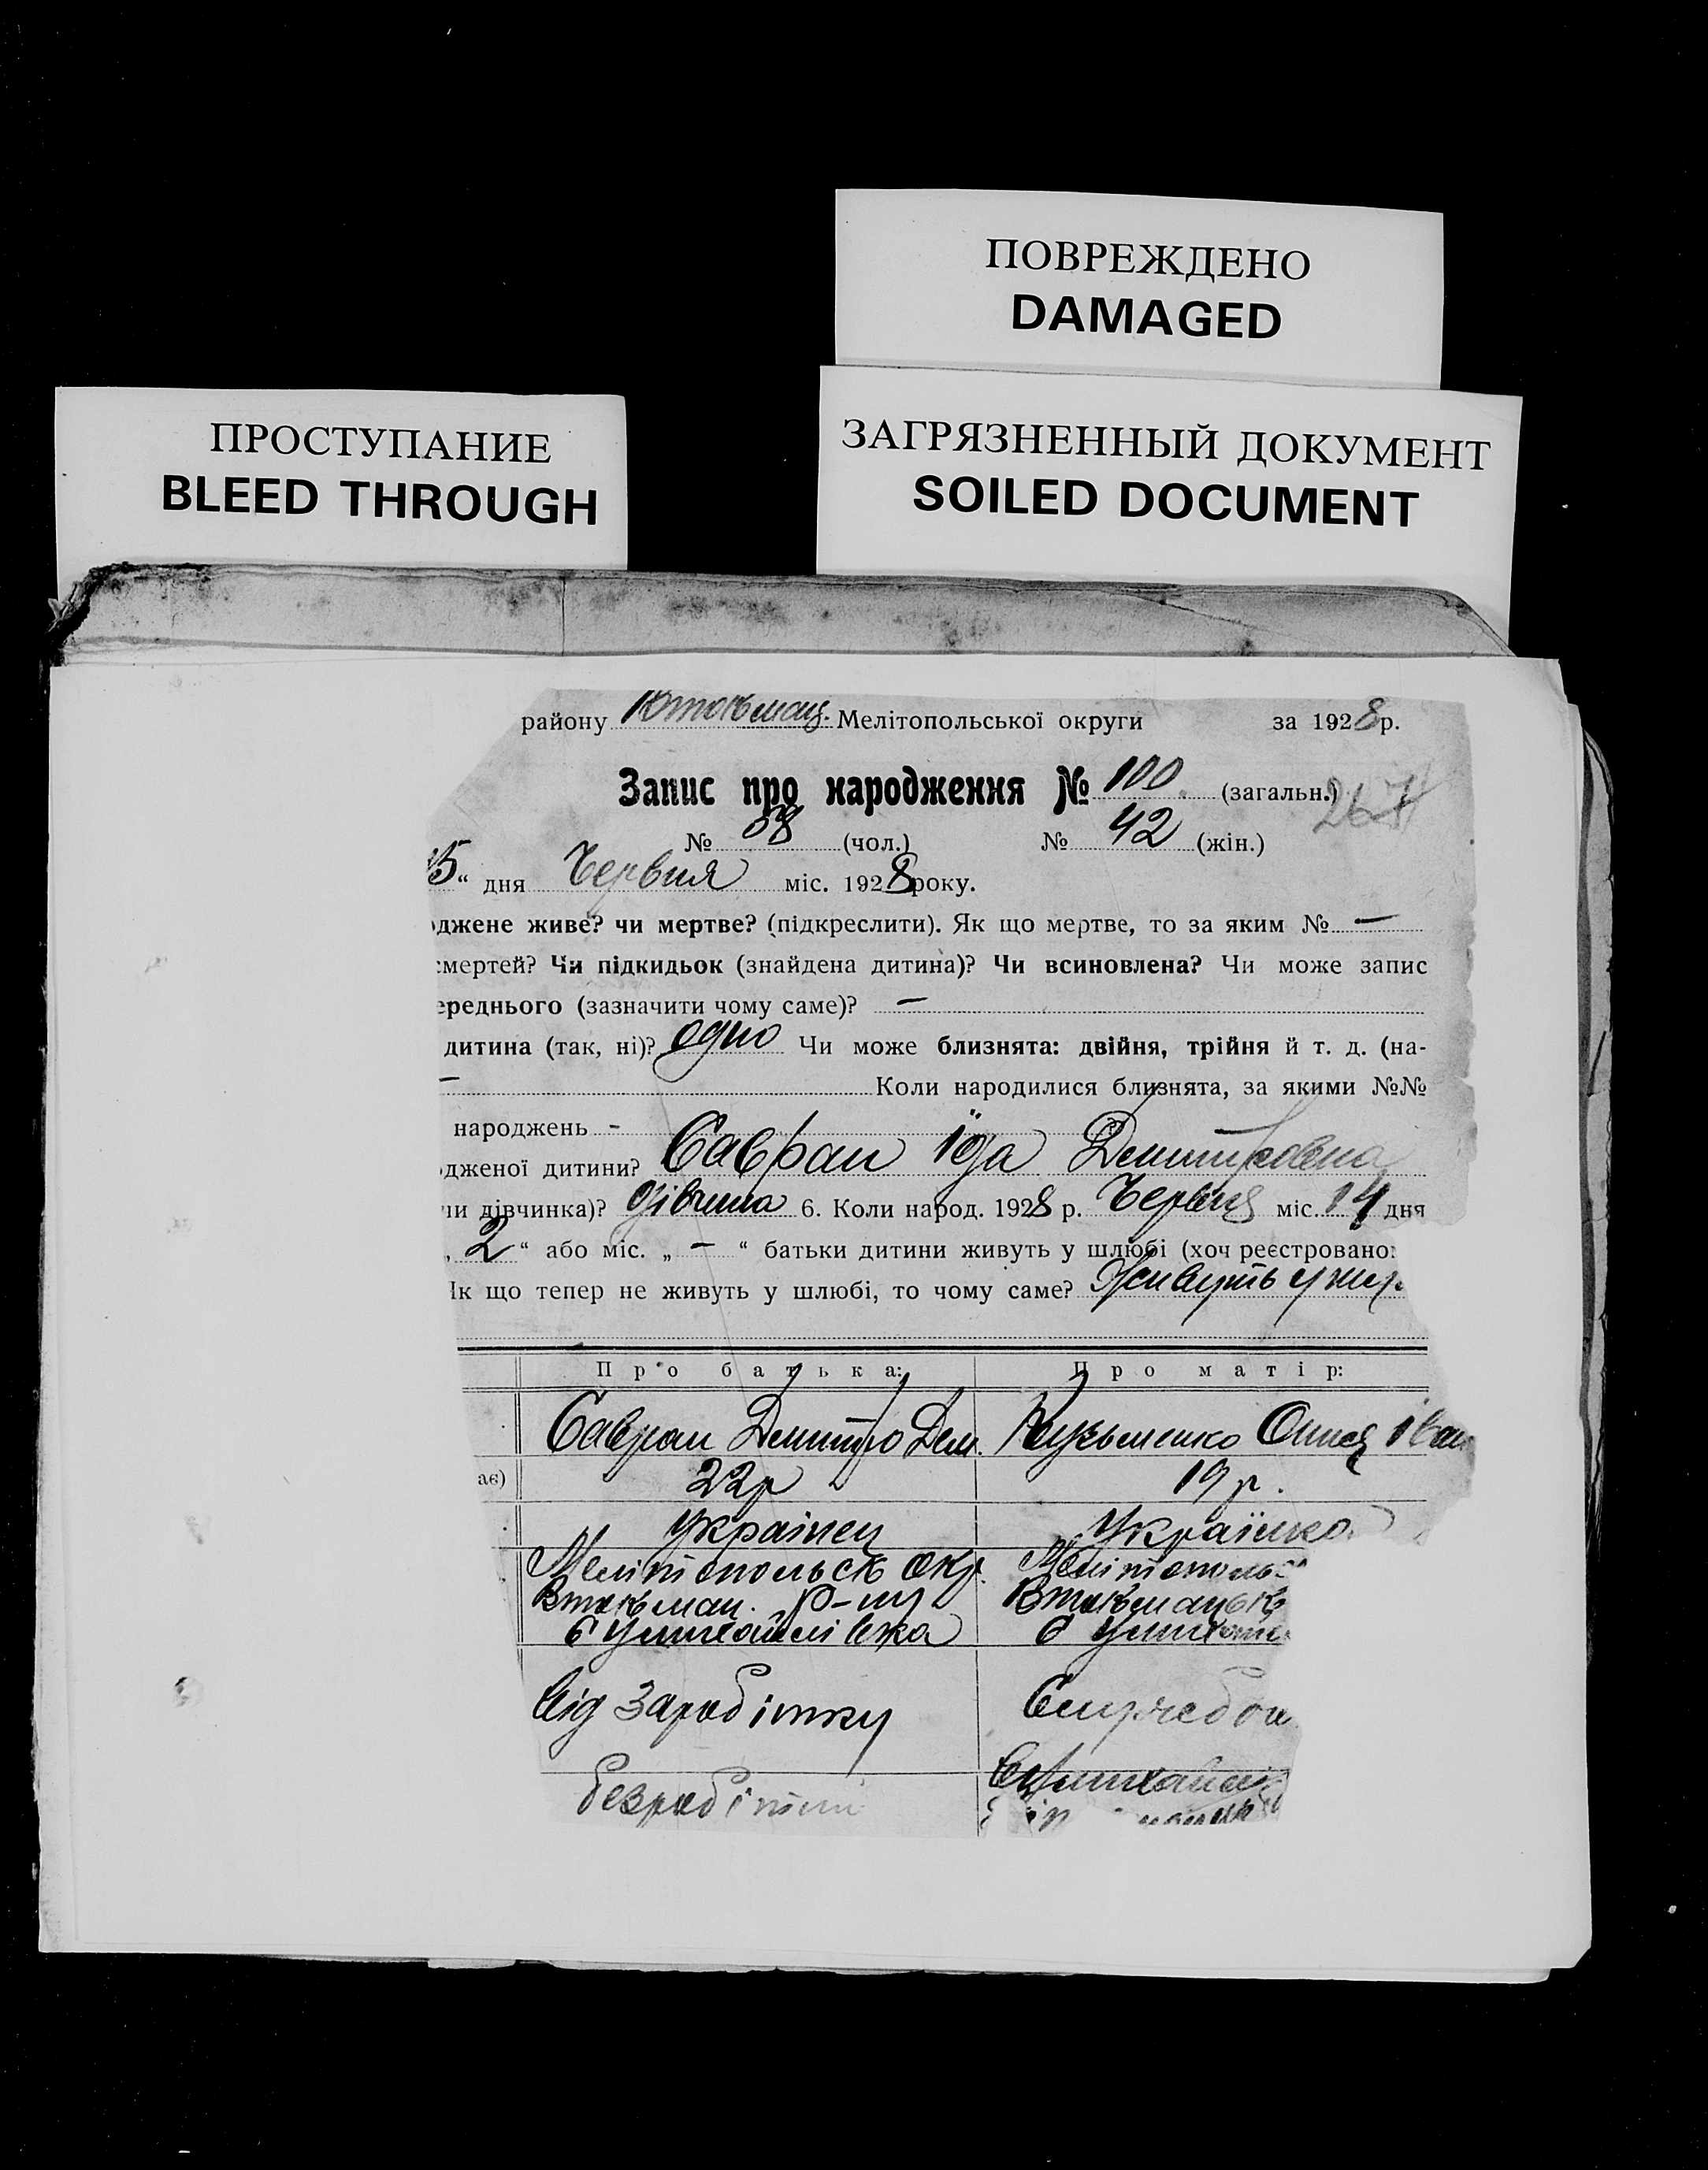 ПОВРЕЖДЕНО
DAMAGED
ПРОСТУПАНИЕ
BLEED THROUGH
ЗАГРЯЗНЕННЫЙ ДОКУМЕНТ
SOILED DOCUMENT
району Втокмац. Мелітопольської округи за 1928 р.
Запис про народження № 100 (загальн.) 267
№ 58 (чол.) № 42 (жін.)
15“ дня Червня міс. 1928 року.
джене живе? чи мертве? (підкреслити). Як що мертве, то за яким № —
смертей? Чи підкидьок (знайдена дитина)? Чи всиновлена? Чи може запис
ереднього (зазначити чому саме)? —
дитина (так, ні)? одно Чи може близнята: двійня, трійня й т. д. (на-
— Коли народилися близнята, за якими №№
народжень -
дженої дитини? Савран Іда Дмитровна
чи дівчинка)? дівчина 6. Коли народ. 1928 р. Червня міс. 14 дня
„ 2 “ або міс. „ — “ батьки дитини живуть у шлюбі (хоч реєстровано
Як що тепер не живуть у шлюбі, то чому саме? Живуть у
Про батька: Про матір:
Савран Дмитро Дем. Кузьменко Іван
ає) 22р 19 р.
Українец Українка
Мелітопольск окр. Мелітопольс
Втокмац. р-ну Втокмацьк
від заробітку
безробітний